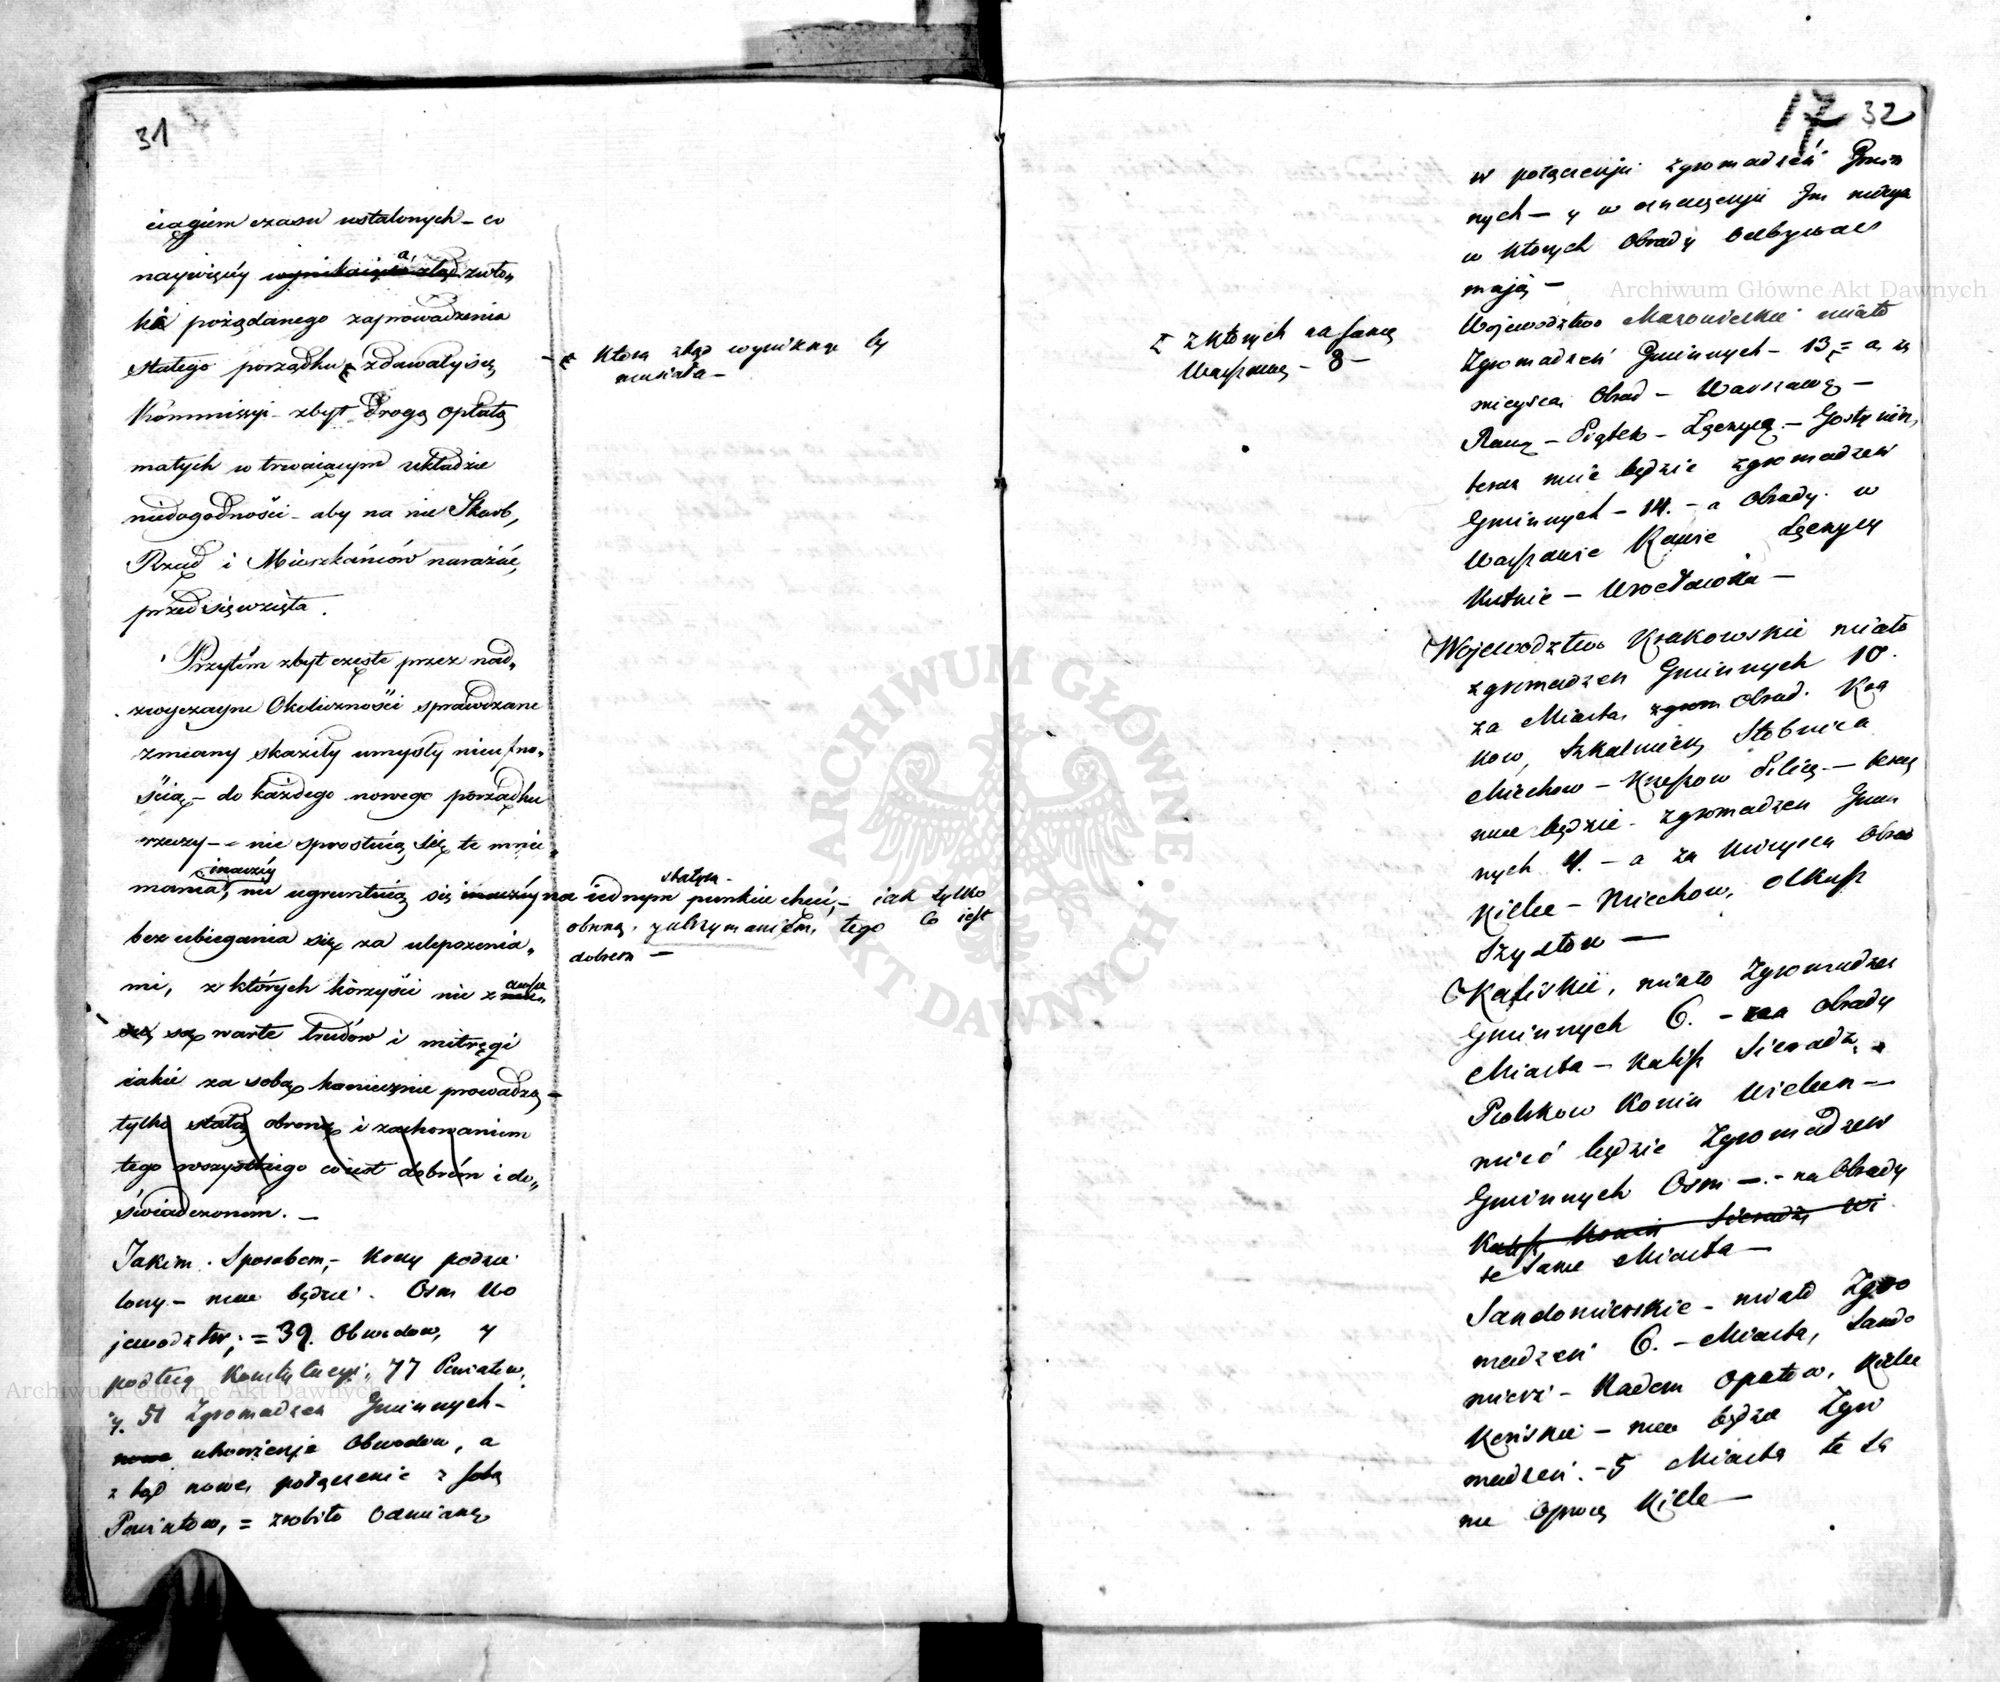 31
ciągiem czasu ustalonych – co
naywięcéy wynikaiąca ztąd zwło„
ki pożądanego zaprowadzenia
stałego porządku zdawały się
Kommissyi – zbyt drogą opłatą
małych w trwaiącym układzie
niedogodności – aby na nie Skarb,
Rząd i Mieszkańców narażać,
przedsięwzięła.
– która ztąd wyniknąć by
musiała –
Przytém zbyt częste przez nad„
zwyczayne Okoliczności sprawdzane
zmiany skaziły umysły nieufno„
ścią – do każdego nowego porządku
rzeczy – nie sprostuią się te mnie„
mania, inaczéy nie ugruntuią się inaczéy na iednym stałym punkcie chęci, – iak tylko
obroną, y utrzymaniem, tego co iest
dobrem –
bez ubiegania się za ulepszenia„
mi, z których korzyści nie zawsze
są warte trudów i mitręgi
iakie za sobą koniecznie prowadzą –
tylko stałą obroną i zachowaniem
tego wszystkiego co iest dobrém i do„
świadczoném. –
Jakim Sposobem, – Kray podzie
lony – miec będzie Osm Wo
jewodztw; = 39. Obwodow, y
podług Konstytucyi, 77 Powiatow,
y. 51 Zgromadzen Gminnych –
nowe utworzenie Obwodow, a
z tąd nowe, połączenie z sobą
Powiatow, = zrobiło Odmianę
17 32
w połączeniu zgromadzeń Gmin
nych – y w oznaczeniu Im mieysc
w ktorych Obrady Odbywac
mają –
Wojewodztwo Mazowieckie miało
Zgromadzeń Gminnych – 13 = a za
mieysca Obrad – Warszawę –
Rawę – Piątek – Łęczycę – Gostynin,
teraz mieć będzie zgromadzen
Gminnych – 14. – a Obrady w
Warszawie Rawie Łęczycy
Kutnie – Wrocławku –
z ktorych na samą
Warszawę – 8 –
Wojewodztwo Krakowskie miało
zgromadzen Gminnych 10.
za Miasta zgrom Obrad. Kra
kow, Szkalmierz, Stobnica
Miechow – Krzeszow Pilicę – teraz
miec będzie – zgromadzen Gmin
nych 4. – a za Mieysca Obrad
Kielce – Miechow, Olkusz
Szydłow –
Kaliskie, miało Zgromadzen
Gminnych 6. – za obrady
Miasta – Kalisz Sieradz,
Piotrkow Konin Wielun –
mieć będzie Zgromadzen
Gminnych Osm – na Obrady
Kalisz Konin Sieradz Wi
te same Miasta –
Sandomierskie – miało Zgro
madzeń 6. – Miasta, Sando
mierz – Radom Opatow, Kielce
Konskie – miec będzie Zgro
madzeń. – 5 Miasta te sa
me Oprocz Kielc –
Archiwum Główne Akt Dawnych
Archiwum Główne Akt Dawnych
ARCHIWUM GŁÓWNE AKT DAWNYCH